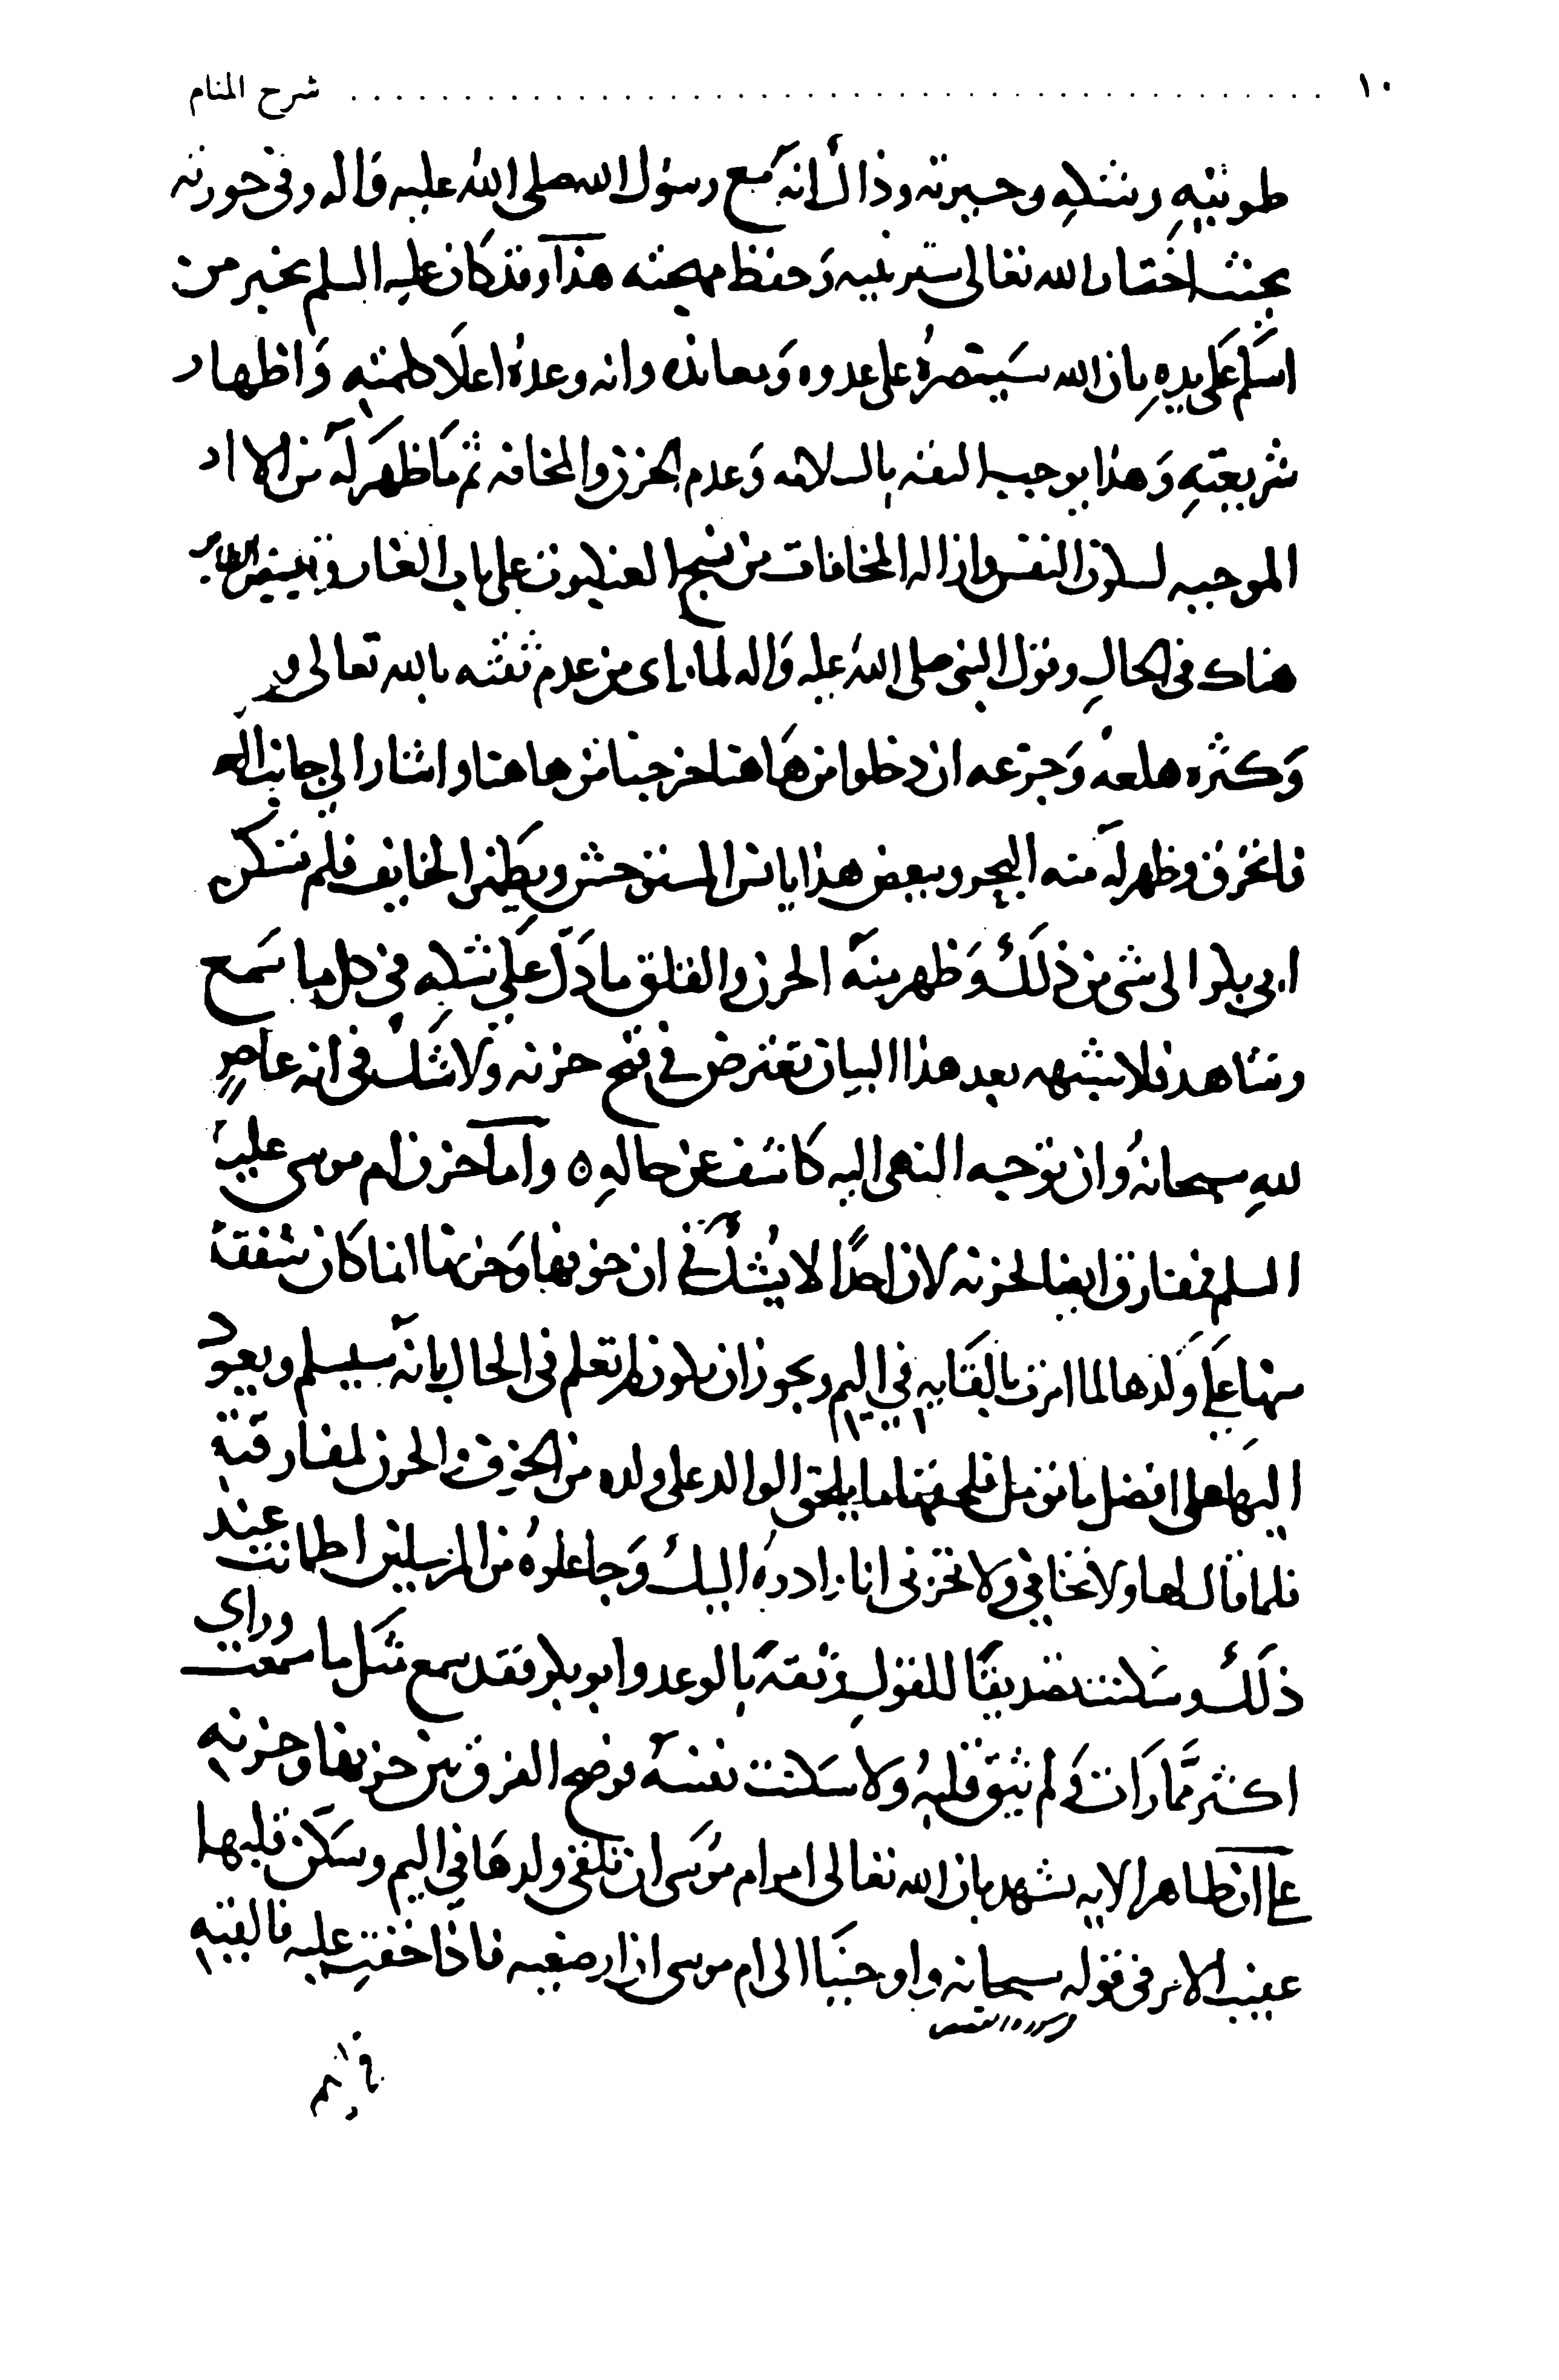 ١٠ ........ شرح المنام
طويته وشكه وحيرته وذاك أنه مع رسول الله صلى الله عليه وآله وفي حوزته
بحيث اختار الله تعالى ستر نبيه وحفظ مهجته هذا وقد كان عليه السلم يخبر من
اسلم على يده بان الله سينصره على عدوه ومعانده وانه وعده اعلا كلمته واظهار
شريعته وهذا يوجب الثقه بالسلامه وعدم الحزن والمخافه ثم ما ظهر له من الايات
الموجبه لسكون النفس وازاله المخافات من نسج العنكبوت على باب الغار وتبييض الطاير
هناك في الحال وقول النبي صلى الله عليه واله لما راى من عدم ثقته بالله تعالى
وكثره هلعه وجزعه ان دخلوا من هاهنا خرجنا من هاهنا واشار الى جانب الغار
فانخرق وظهر له منه البحر وببعض هذا يانس المستوحش ويطمئن الخايف فلم يسكن
ابو بكر الى شي من ذلك وظهر منه الحزن والقلق ما دل على شكه في كل ما سمع
وشاهد فلا شبهه بعد هذا البيان تعترض في قبح حزنه ولا شك في انه عاص
لله سبحانه وان توجه النهي اليه كاشف عن حاله ٥ واما حزن ام موسى عليه
السلم فمفارق ايضا لحزنه لان احدا لا يشك في ان خوفها وحزنها انما كان شفقة
منها على ولدها لما امرت بالقايه في اليم ويجوز ان يكون لم تعلم في الحال بانه سيسلم ويعود
اليها على افضل ما تومل فلحقها ما يلحق الوالد على ولده من الخوف والحزن لمفارقته
فلما قال لها ولا تخافي ولا تحزني انا رادوه اليك وجاعلوه من المرسلين اطمانت عند
ذلك وسكنت تصديقا للقول وثقة بالوعد وابو بكر فقد سمع مثل ما سمعت وراى
اكثر مما رات ولم يثق قلبه ولا سكنت نفسه فوضح الفرق بين حزنها وحزنه
على ان ظاهر الايه يشهد بان الله تعالى امر ام موسى ان تلقي ولدها في اليم وسكن قلبها
عقيب الامر في قوله سبحانه واوحينا الى ام موسى ان ارضعيه فاذا خفت عليه فالقيه
في اليم